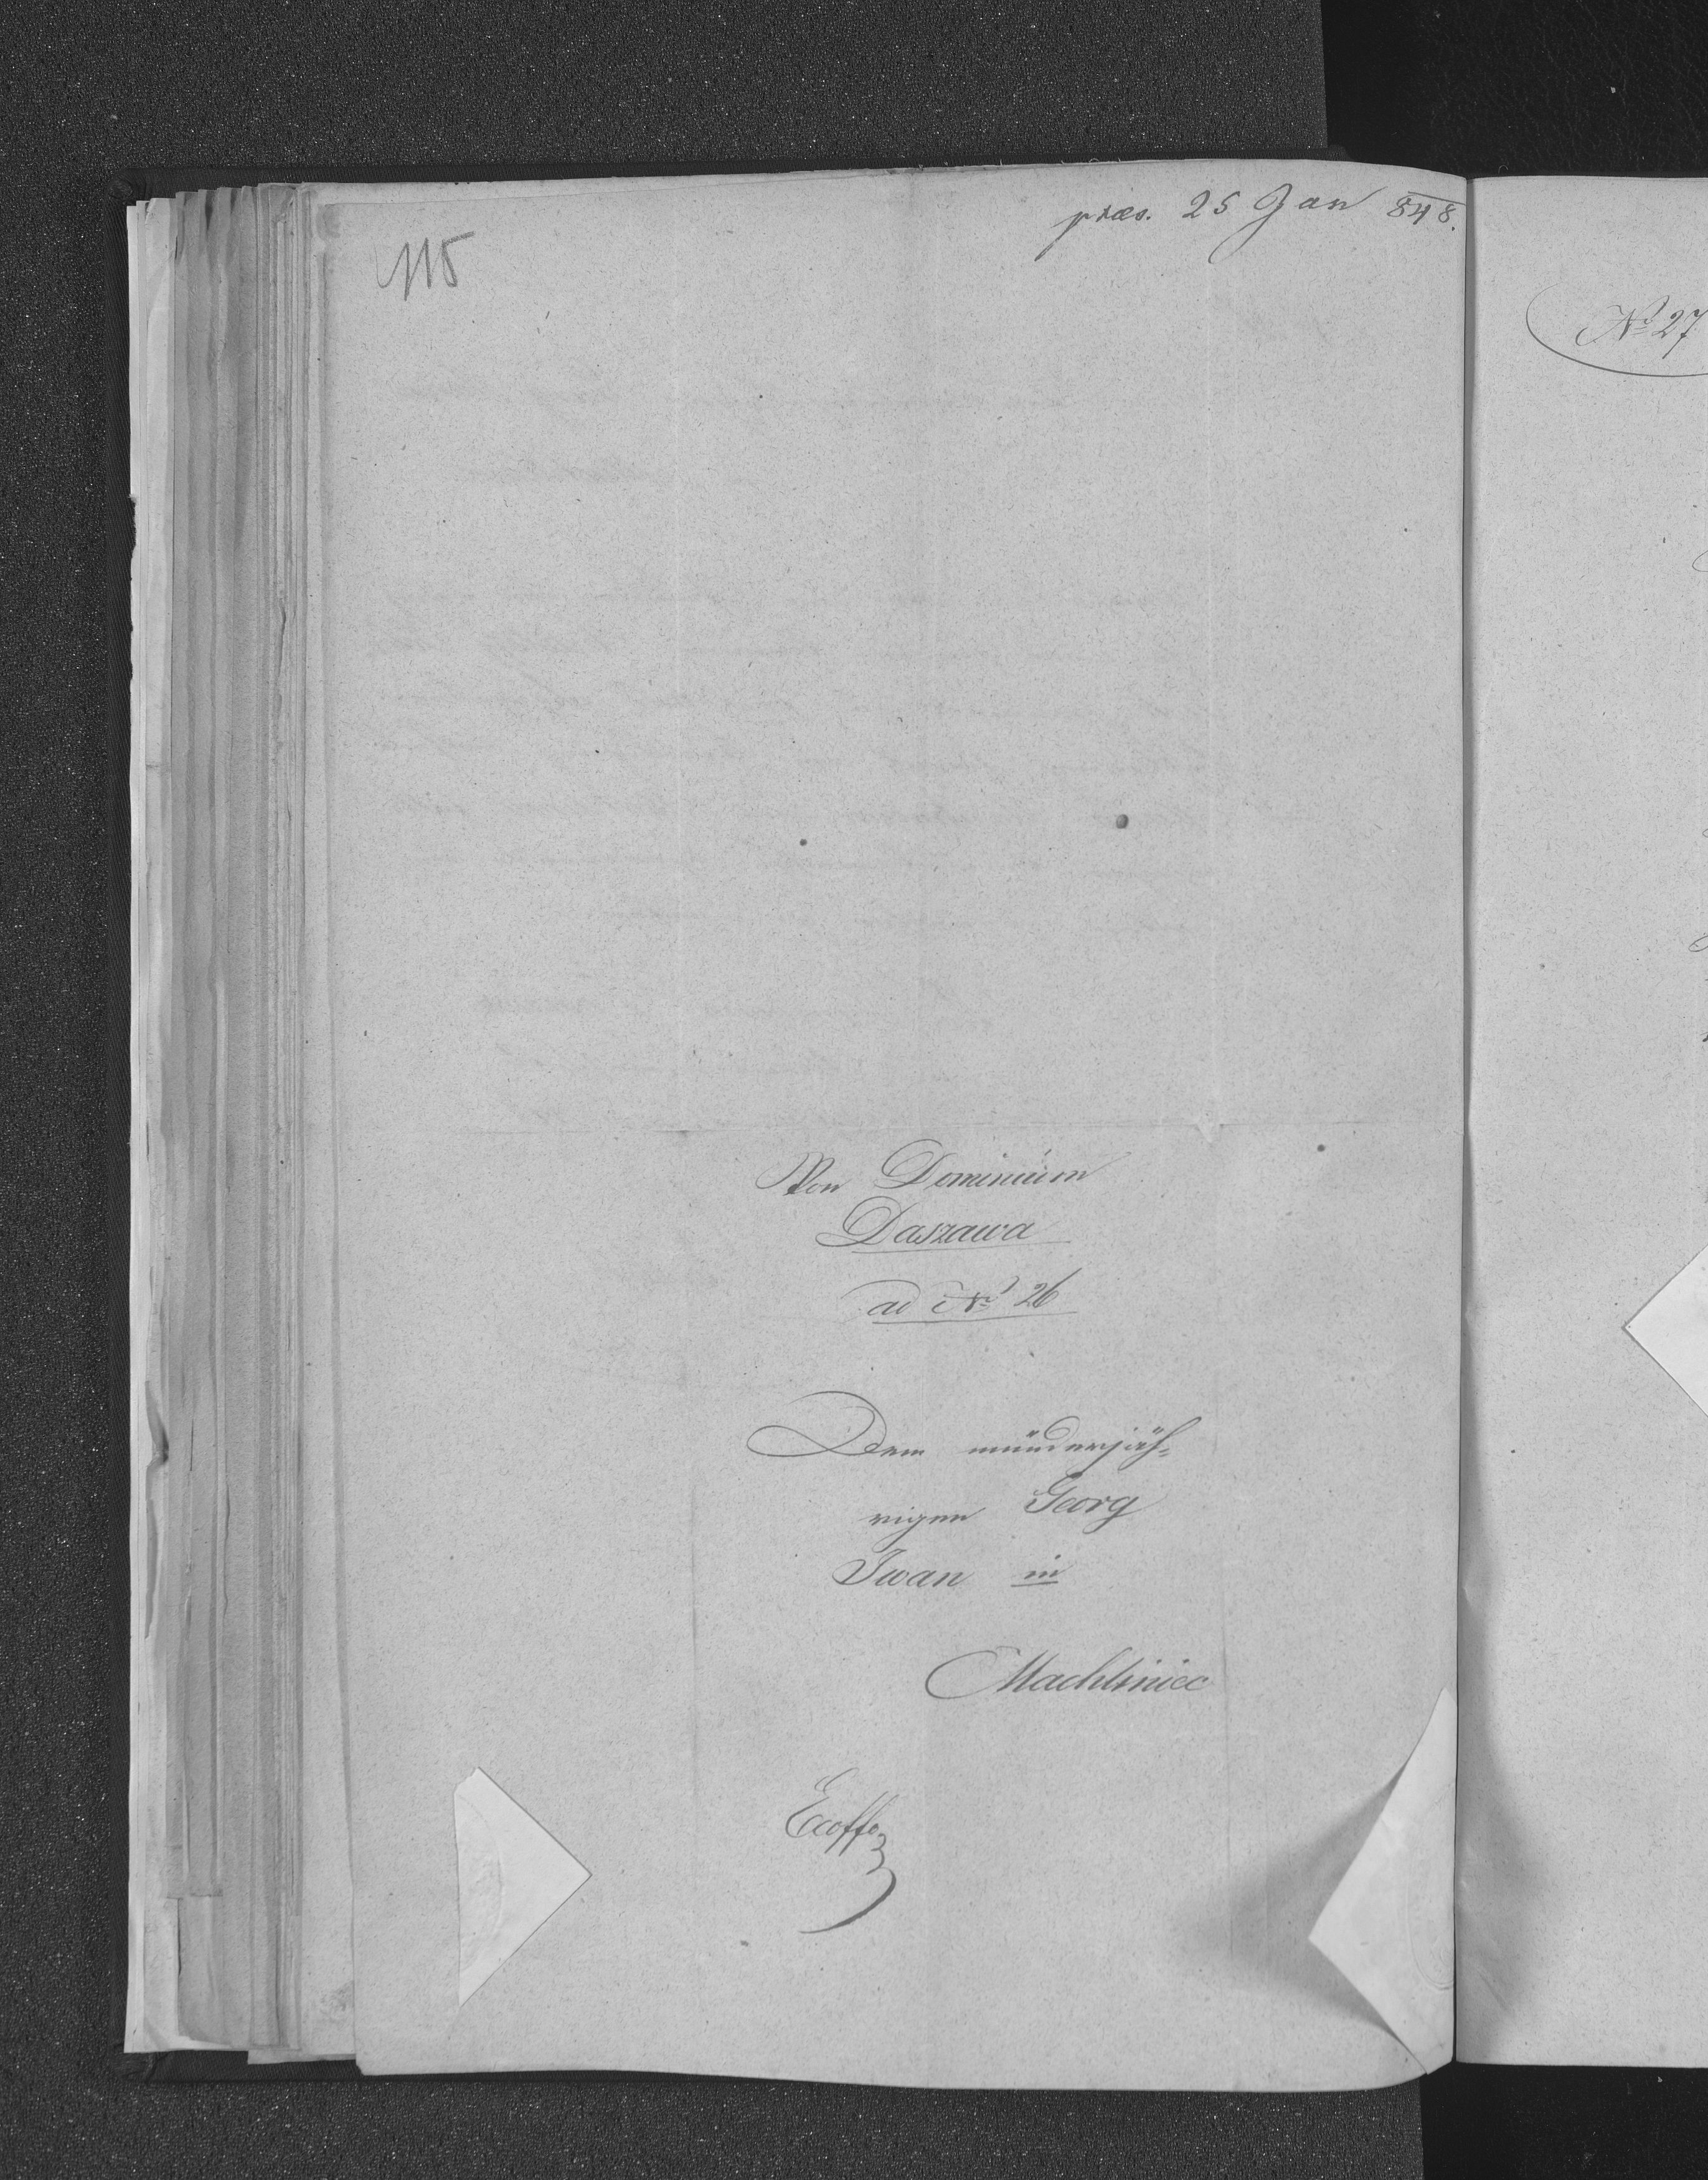 115
præs. 25 Jan 848.
Von Dominium
Daszawa
ad No 26
Dem münderjäh-
rigen Georg
Iwan in
Machliniec
Exoffo
No 27